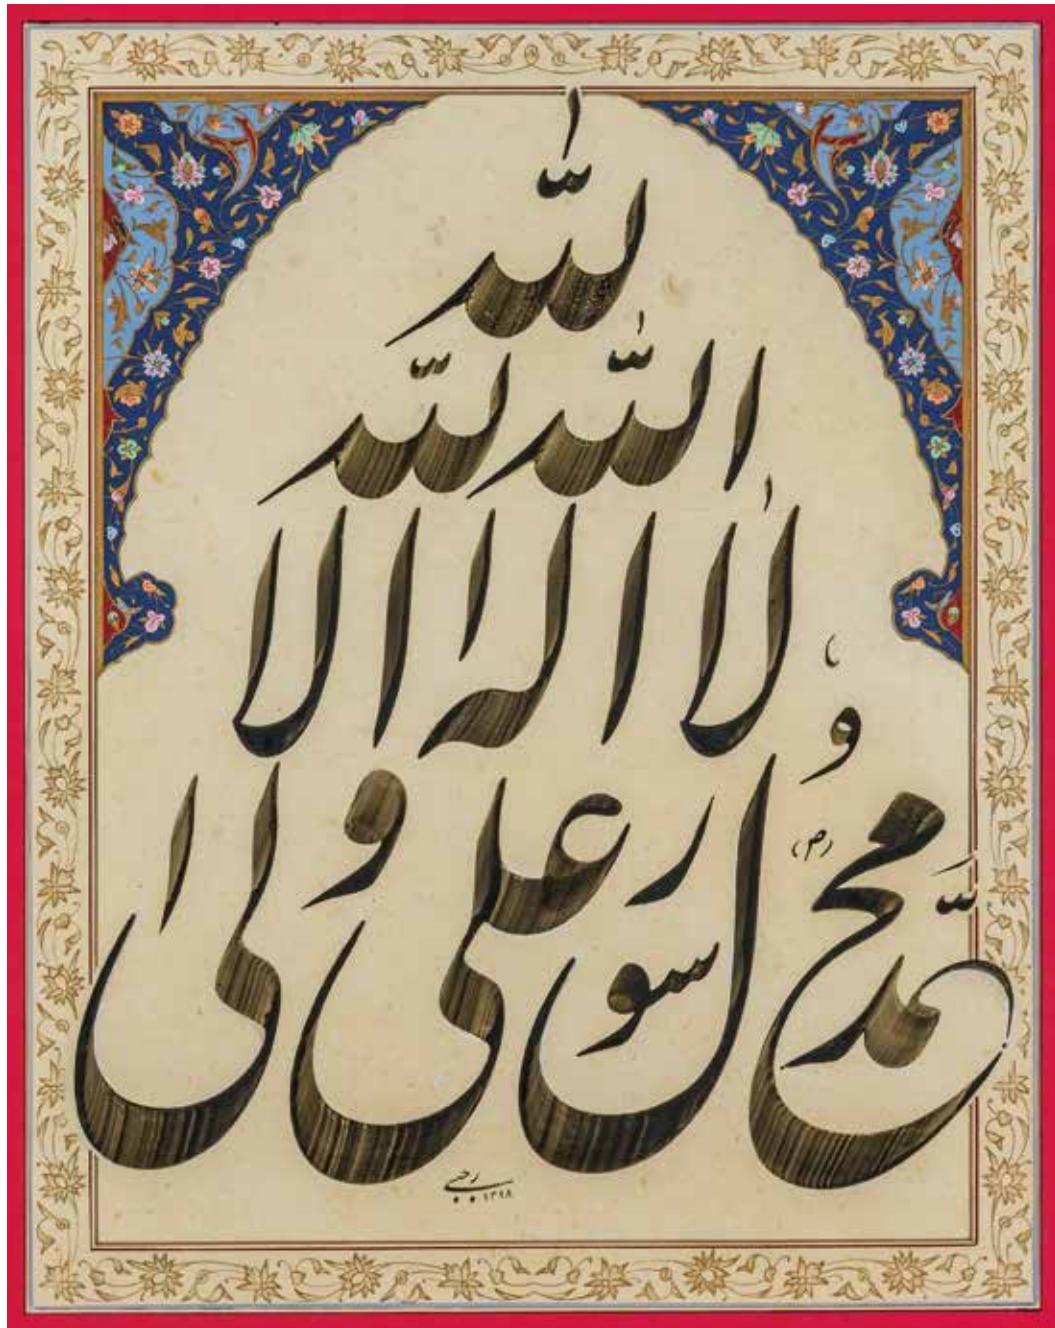 لله
الله لله
لا اله الا
محمد (ص) رسول علی ولی ا
رجبی ۱۳۹۸